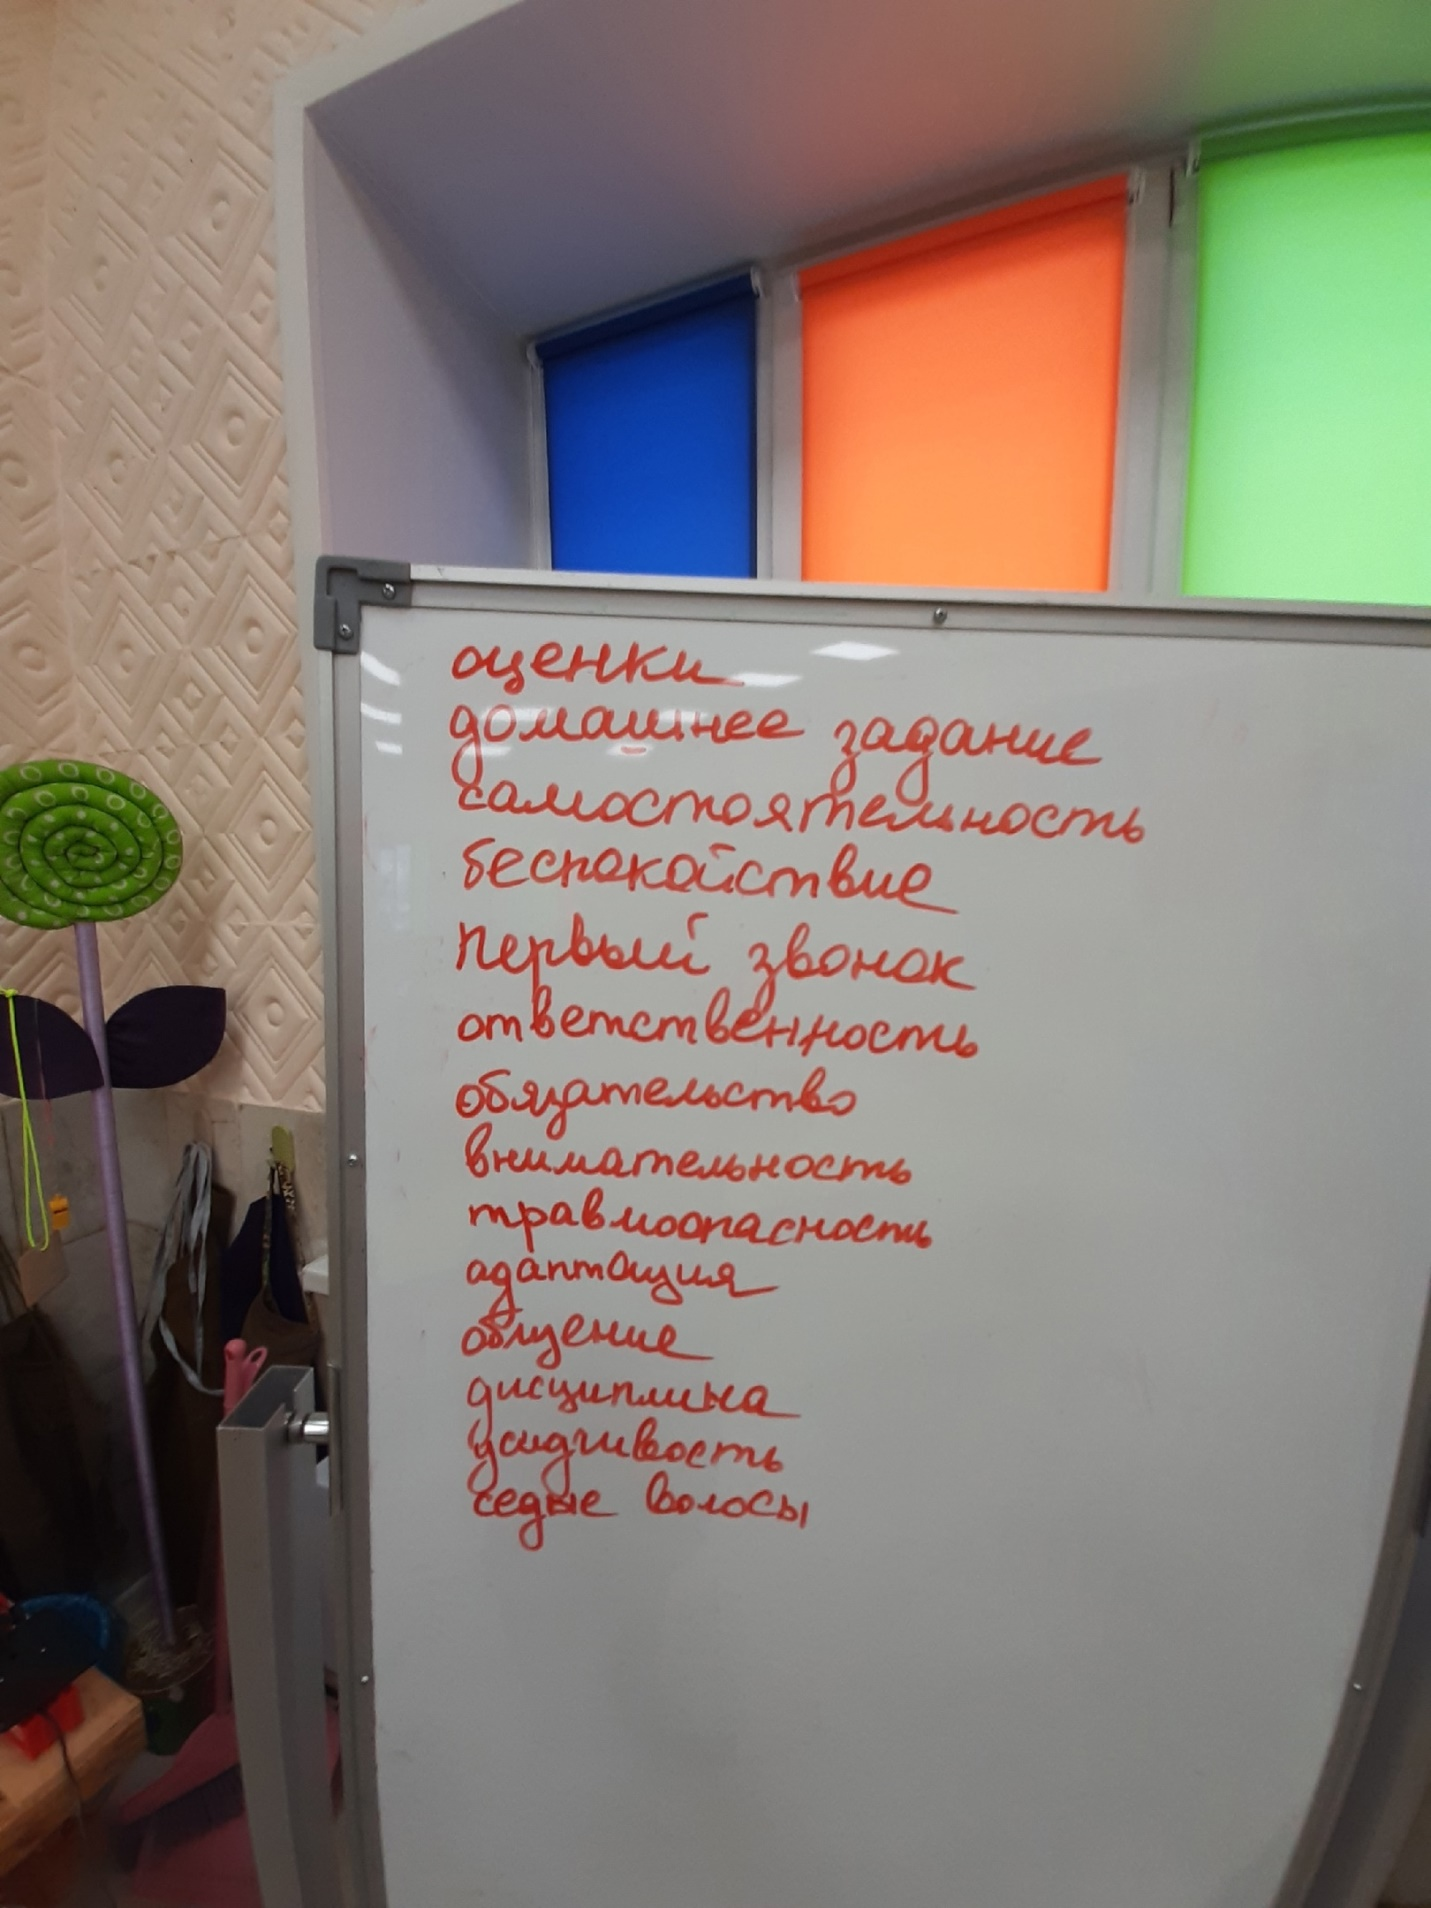 оценки
домашнее задание
самостоятельность
беспокойствие
первый звонок
ответственность
обязательство
внимательность
травмоопасность
адаптация
общение
дисциплина
усидчивость
седые волосы